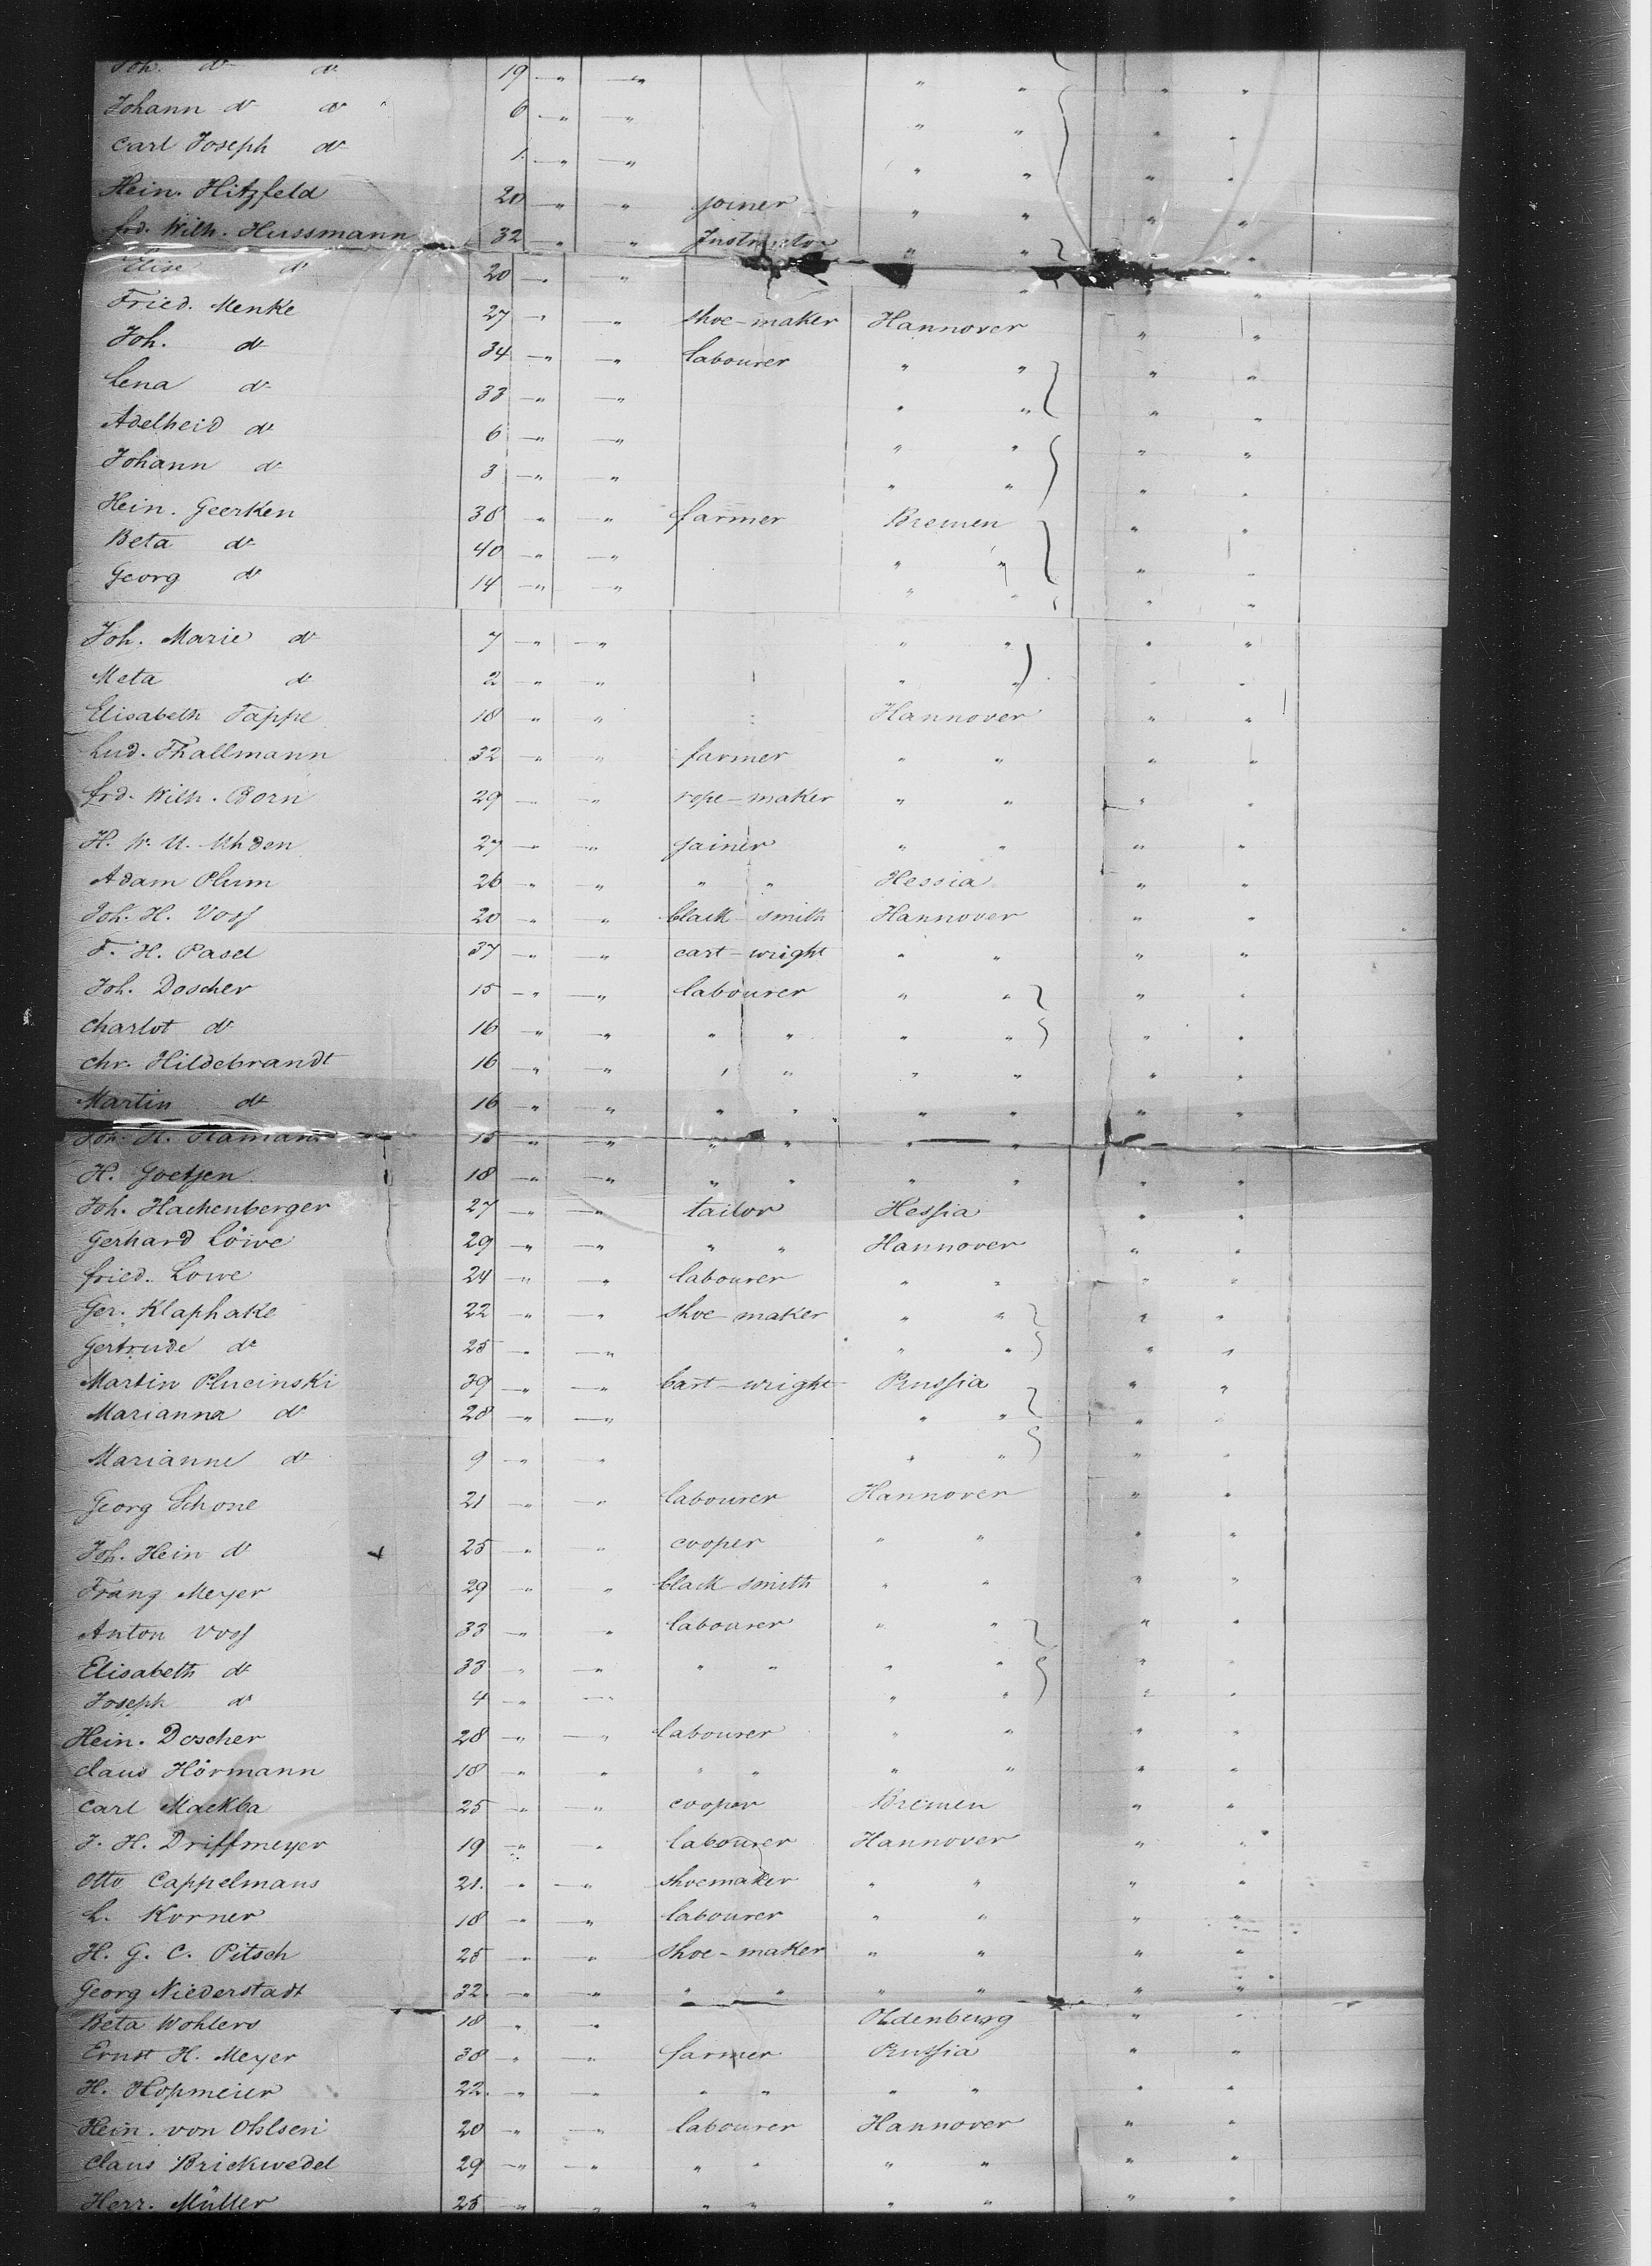 Joh. do do 19 — " — " " " " "
Johann do do 6 — " — " " " " "
Carl Joseph do 1 — " — " " " " "
Hein. Hitzfeld 20 — " " joiner " " " "
frd. Wilh. Hussmann 32 — " " Instructor " " " "
Elise do 20 — " " " " "
Fried. Menke 27 — " — " shoe-maker Hannover " "
Joh. do 34 — " — " labourer " " " "
Lena do 33 — " — " " " " "
Adelheid do 6 — " — " " " " "
Johann do 3 — " — " " " " "
Hein. Geerken 38 " — " farmer Bremen " "
Beta do 40 — " — " " " " "
Georg do 14 — " — " " " " "
Joh. Marie do 7 — " — " " " " "
Meta do 2 — " — " " " " "
Elisabeth Tappe 18 " " Hannover " "
Lud. Thallmann 32 " " farmer " " " "
frd. Wilh. Born 29 — " rope-maker " " " "
H. W. U. Uhden 27 — " — " joiner " " " "
Adam Plum 26 " " " " Hessia " "
Joh. H. Voss 20 — " " black smith Hannover " "
F. H. Pasel 37 — " " cart-wright " " " "
Joh. Doscher 15 — " — " labourer " " " "
Charlot do 16 — " — " " " " " " "
Chr. Hildebrandt 16 — " — " " " " " " "
Martin do 16 — " — " " " " " " "
Joh. H. Hamann 15 " — " " " " " "
H. Goetjen 18 — " — " " " " " " "
Joh. Hachenberger 27 — " — " tailor Hessia " "
Gerhard Löwe 29 — " — " " " Hannover " "
fried. Löwe 24 — " — " labourer " " " "
Ger. Klaphake 22 — " — " shoe-maker " " " "
Gertrude do 25 — " — " " " " "
Martin Plucinski 39 — " — " Cart-wright Prussia " "
Marianna do 28 — " — " " " " "
Marianne do 9 — " — " " " " "
Georg Schone 21 — " " labourer Hannover " "
Joh. Hein do 25 " " cooper " " " "
Franz Meyer 29 — " " black-smith " " " "
Anton Voss 33 — " " labourer " " " "
Elisabeth do 33 " — " " " " " " "
Joseph do 4 — " — " " " " "
Hein. Doscher 28 — " — " labourer " " " "
Claus Hörmann 18 — " " " " " " " "
Carl Mackba 25 — " — " cooper Bremen " "
J. H. Driffmeyer 19 — " " labourer Hannover " "
Otto Cappelmans 21. " — " shoemaker " " " "
L. Korner 18 — " — " labourer " " " "
H. G. C. Pitsch 25 " — " shoe-maker " " " "
Georg Niederstadt 32. — " — " " " " " " "
Beta Wohlers 18 " — " Oldenburg " "
Ernst H. Meyer 38 " — " farmer Prussia " "
H. Hopmeier 22. — " — " " " " " " "
Hein. von Ohlsen 20 — " — " labourer Hannover " "
Claus Brickwedel 29 — " — " " " " " " "
Herr. Müller 25 — " — " " " " " " "